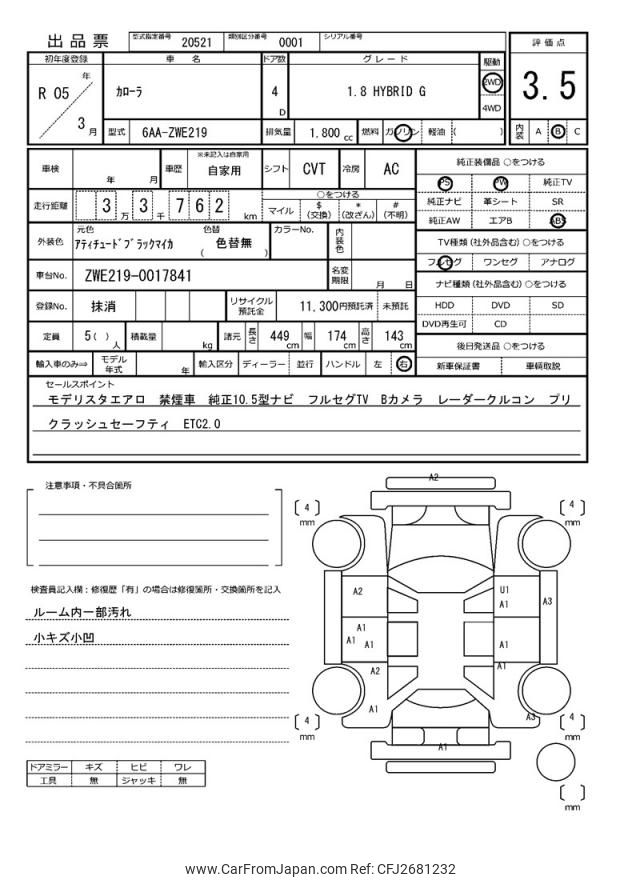 出品票
型式指定番号 20521 類別区分番号 0001 シリアル番号
評価点
3.5
内装 A B C
初年度登録 車名 ドア数 グレード 駆動
R 05 年 3 月
カローラ
4 D
1.8 HYBRID G
2WD
4WD
型式 6AA-ZWE219 排気量 1,800 cc 燃料 ガソリン 軽油 ( )
車検 年 月 車歴 ※未記入は自家用 自家用 シフト CVT 冷房 AC
走行距離 3 3 万 7 6 2 千 km
○をつける
マイル $ (交換) * (改ざん) # (不明)
外装色 元色 アティチュードブラックマイカ 色替 ( 色替無 ) カラーNo. 内装色
車台No. ZWE219-0017841 名変期限 月 日
登録No. 抹消 リサイクル預託金 11,300円預託済 未預託
定員 5( ) 人 積載量 kg 諸元 長さ 449 cm 幅 174 cm 高さ 143 cm
輸入車のみ⇒ モデル年式 年 輸入区分 ディーラー 並行 ハンドル 左 右
純正装備品 ○をつける
PS PW 純正TV
純正ナビ 革シート SR
純正AW エアB ABS
TV種類 (社外品含む) ○をつける
フルセグ ワンセグ アナログ
ナビ種類 (社外品含む) ○をつける
HDD DVD SD
DVD再生可 CD
後日発送品 ○をつける
新車保証書 車輌取説
セールスポイント
モデリスタエアロ 禁煙車 純正10.5型ナビ フルセグTV Bカメラ レーダークルコン プリ
クラッシュセーフティ ETC2.0
注意事項・不具合箇所
検査員記入欄：修復歴「有」の場合は修復箇所・交換箇所を記入
ルーム内一部汚れ
小キズ小凹
ドアミラー キズ ヒビ ワレ
工具 無 ジャッキ 無
A2
4 mm
4 mm
A2
U1
A1
A3
A1
A1
A1
A1
A2
A1
A1
A3
4 mm
4 mm
A1
mm
www.CarFromJapan.com Ref: CFJ2681232